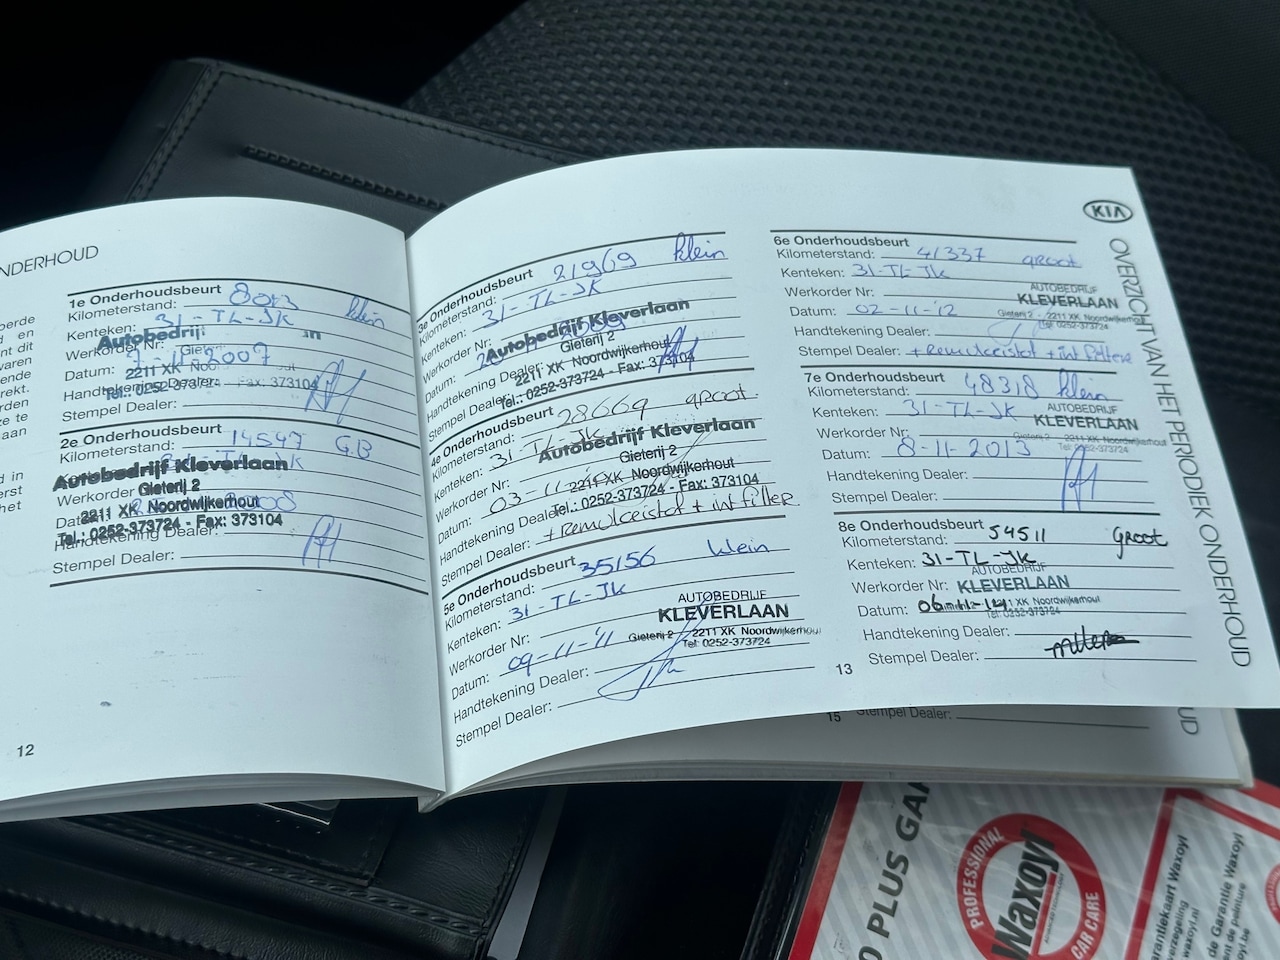 NDERHOUD
oerde
en
nt dit
varen
ende
rekt.
orden
ze te
aan
d in
erst
het
1e Onderhoudsbeurt
Kilometerstand: 8013 klein
Kenteken: 31-TL-JK
Autobedrij
Werkorder
Datum: 2007
2211 XK
Handtekening Dealer:
Tel.: 0252-373724 - Fax: 373104
Stempel Dealer:
2e Onderhoudsbeurt
Kilometerstand: 14547 G.B
Autobedrijf Kleverlaan
Werkorder
Gieterij 2
2211 XK Noordwijkerhout
Tel.: 0252-373724 - Fax: 373104
Handtekening Dealer:
Stempel Dealer:
12
3e Onderhoudsbeurt
Kilometerstand: 21969 klein
Kenteken: 31-TL-JK
Werkorder Nr:
Autobedrijf Kleverlaan
Gieterij 2
Datum:
2211 XK Noordwijkerhout
Handtekening Dealer:
Tel.: 0252-373724 - Fax: 373104
Stempel Dealer:
4e Onderhoudsbeurt
Kilometerstand: 28669 groot
Kenteken: 31-TL-JK
Autobedrijf Kleverlaan
Werkorder Nr:
Gieterij 2
Datum: 03-11
2211 XK Noordwijkerhout
Handtekening Dealer:
Tel.: 0252-373724 - Fax: 373104
Stempel Dealer: + Remvloeistof + int filter
5e Onderhoudsbeurt
Kilometerstand: 35156 klein
Kenteken: 31-TL-JK
Werkorder Nr:
AUTOBEDRIJF
KLEVERLAAN
Gieterij 2 - 2211 XK Noordwijkerhout
Tel: 0252-373724
Datum: 09-11-'11
Handtekening Dealer:
Stempel Dealer:
6e Onderhoudsbeurt
Kilometerstand: 41337 groot
Kenteken: 31-TL-JK
Werkorder Nr:
AUTOBEDRIJF
KLEVERLAAN
Datum: 02-11-'12
Gieterij 2 - 2211 XK Noordwijkerhout
Tel: 0252-373724
Handtekening Dealer:
Stempel Dealer: + Remvloeistof + int filter
7e Onderhoudsbeurt
Kilometerstand: 48318 klein
Kenteken: 31-TL-JK
AUTOBEDRIJF
KLEVERLAAN
Werkorder Nr:
Gieterij 2 - 2211 XK Noordwijkerhout
Tel: 0252-373724
Datum: 8-11-2013
Handtekening Dealer:
Stempel Dealer:
8e Onderhoudsbeurt
Kilometerstand: 54511 Groot
Kenteken: 31-TL-JK
AUTOBEDRIJF
Werkorder Nr: KLEVERLAAN
Datum:
2211 XK Noordwijkerhout
Tel: 0252-373724
Handtekening Dealer:
Stempel Dealer:
13
KIA
OVERZICHT VAN HET PERIODIEK ONDERHOUD
15
Stempel Dealer:
UD
PLUS GA
PROFESSIONAL
Waxoyl
CAR CARE
arantiekaart Waxoyl
verzegeling
waxoyl.nl
de Garantie Waxoyl
ent de peinture
oyl.be